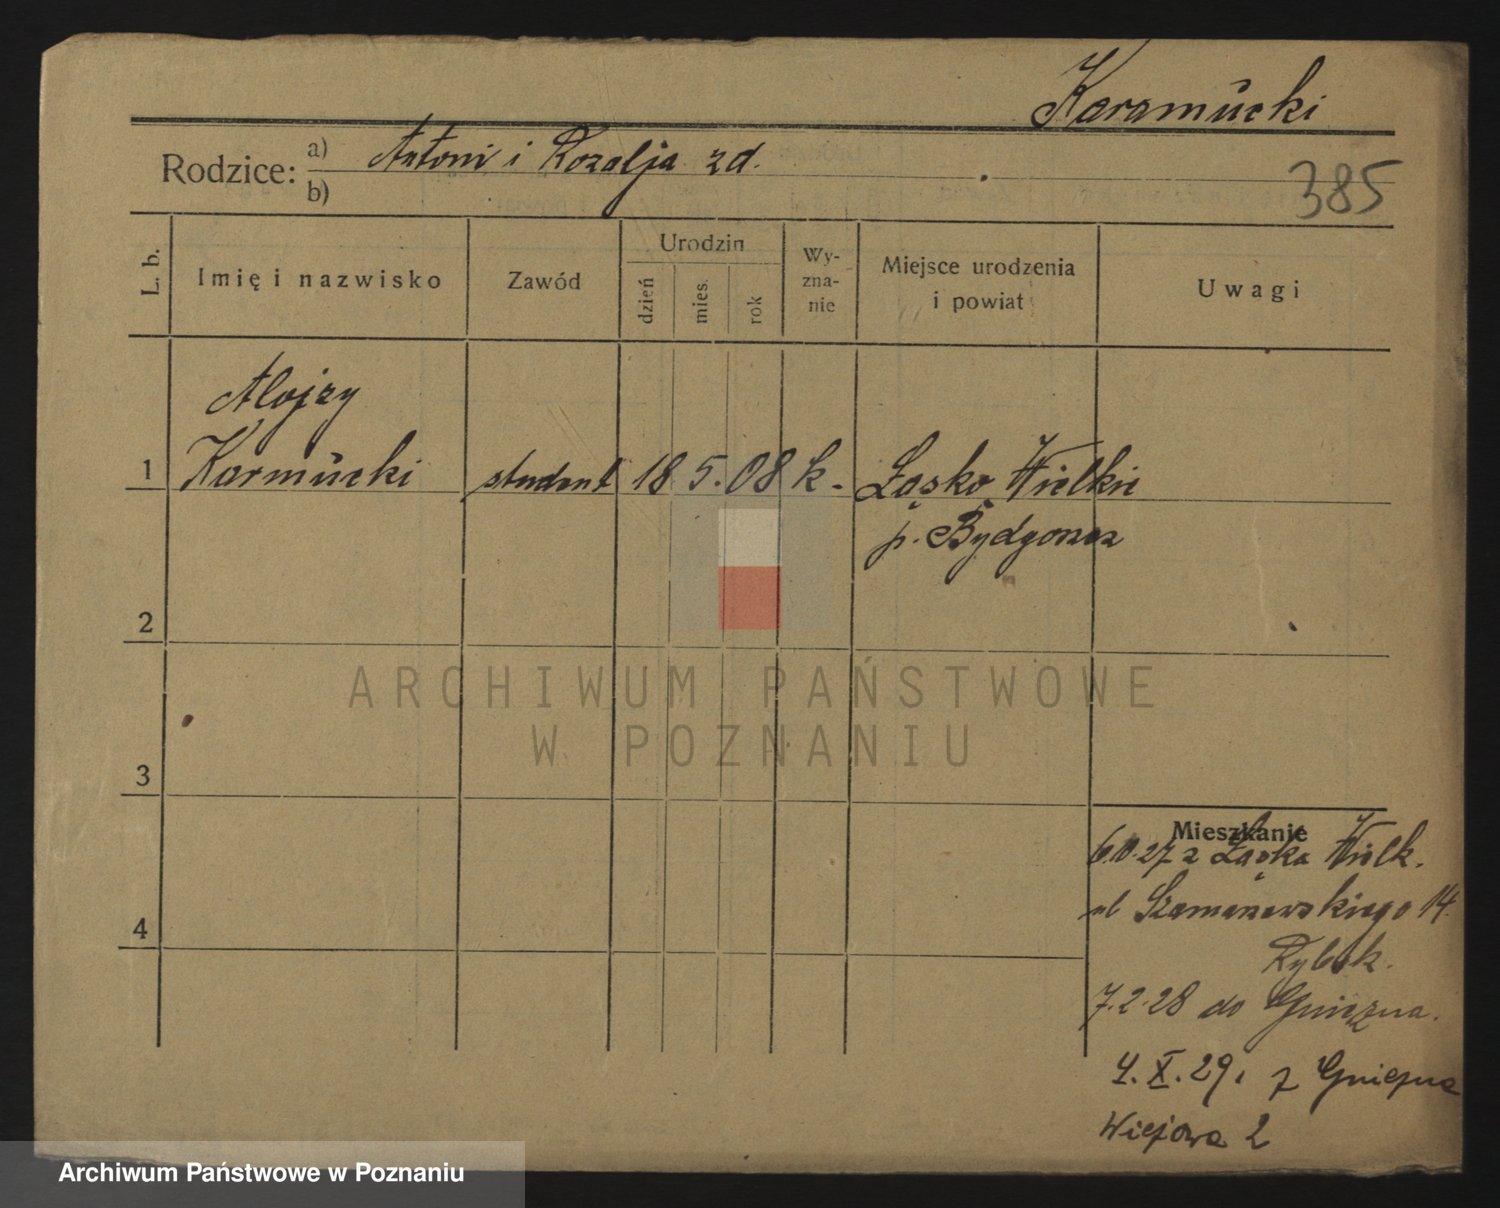 Karamucki
Rodzice: a) Antoni i Rozalja zd.
b)
385
L. b.
Imię i nazwisko
Zawód
Urodzin
dzień
mies.
rok
Wy-
zna-
nie
Miejsce urodzenia
i powiat
Uwagi
Alojzy
1 Karmucki student 18 5. 08 k. Łąsko Wielkie
p. Bydgoszcz
2
3
4
Mieszkanie
6.10.27 z Łąska Wielk.
ul Szamarzewskiego 14.
7.2.28 do Gniezna.
4. X. 29. z Gniezna
Wiejowa 2
ARCHIWUM PAŃSTWOWE
W POZNANIU
Archiwum Państwowe w Poznaniu